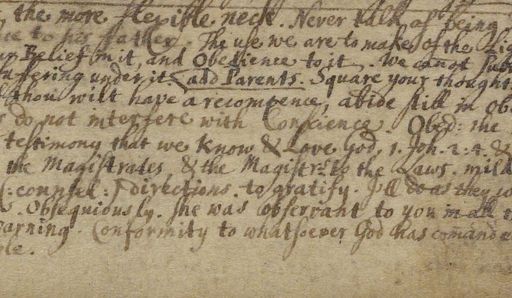 , the more flexible neck. Never talk as being
to his father. The use we are to make of the
Belief in it, and Obedience to it. We canot
suffering under it. add Parents. Square your thought
thou wilt have a recompence, abide still in ob
do not interfere with Conscience. Obed: the
testimony that we Know & Love God, 1. Joh. 2: 4. &
the Magistrates, & the Magistrs. to the Laws. mild
counsel: directions. to gratify. I'll do as they
. Obsequiously. she was observant to you in all
warning. Conformity to whatsoever God has comande
ple.